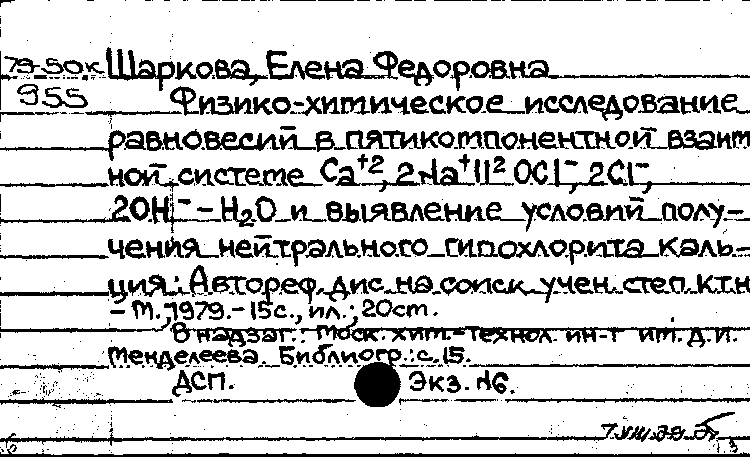 79-50к Шаркова, Елена Федоровна
955 Физико-химическое исследование
равновесий в пятикомпонентной взаим
ной системе Ca⁺², 2Na⁺||² OCl⁻, 2Cl⁻,
2OH⁻ – H₂O и выявление условий полу-
чения нейтрального гипохлорита каль-
ция: Автореф. дис. на соиск. учен. степ. к.т.н
– М., 1979. – 15с., ил.; 20cm.
В надзаг.: Моск. хим.-технол. ин-т им. Д.И.
Менделеева. Библиогр.: с. 15.
ДСП. Экз. №6.